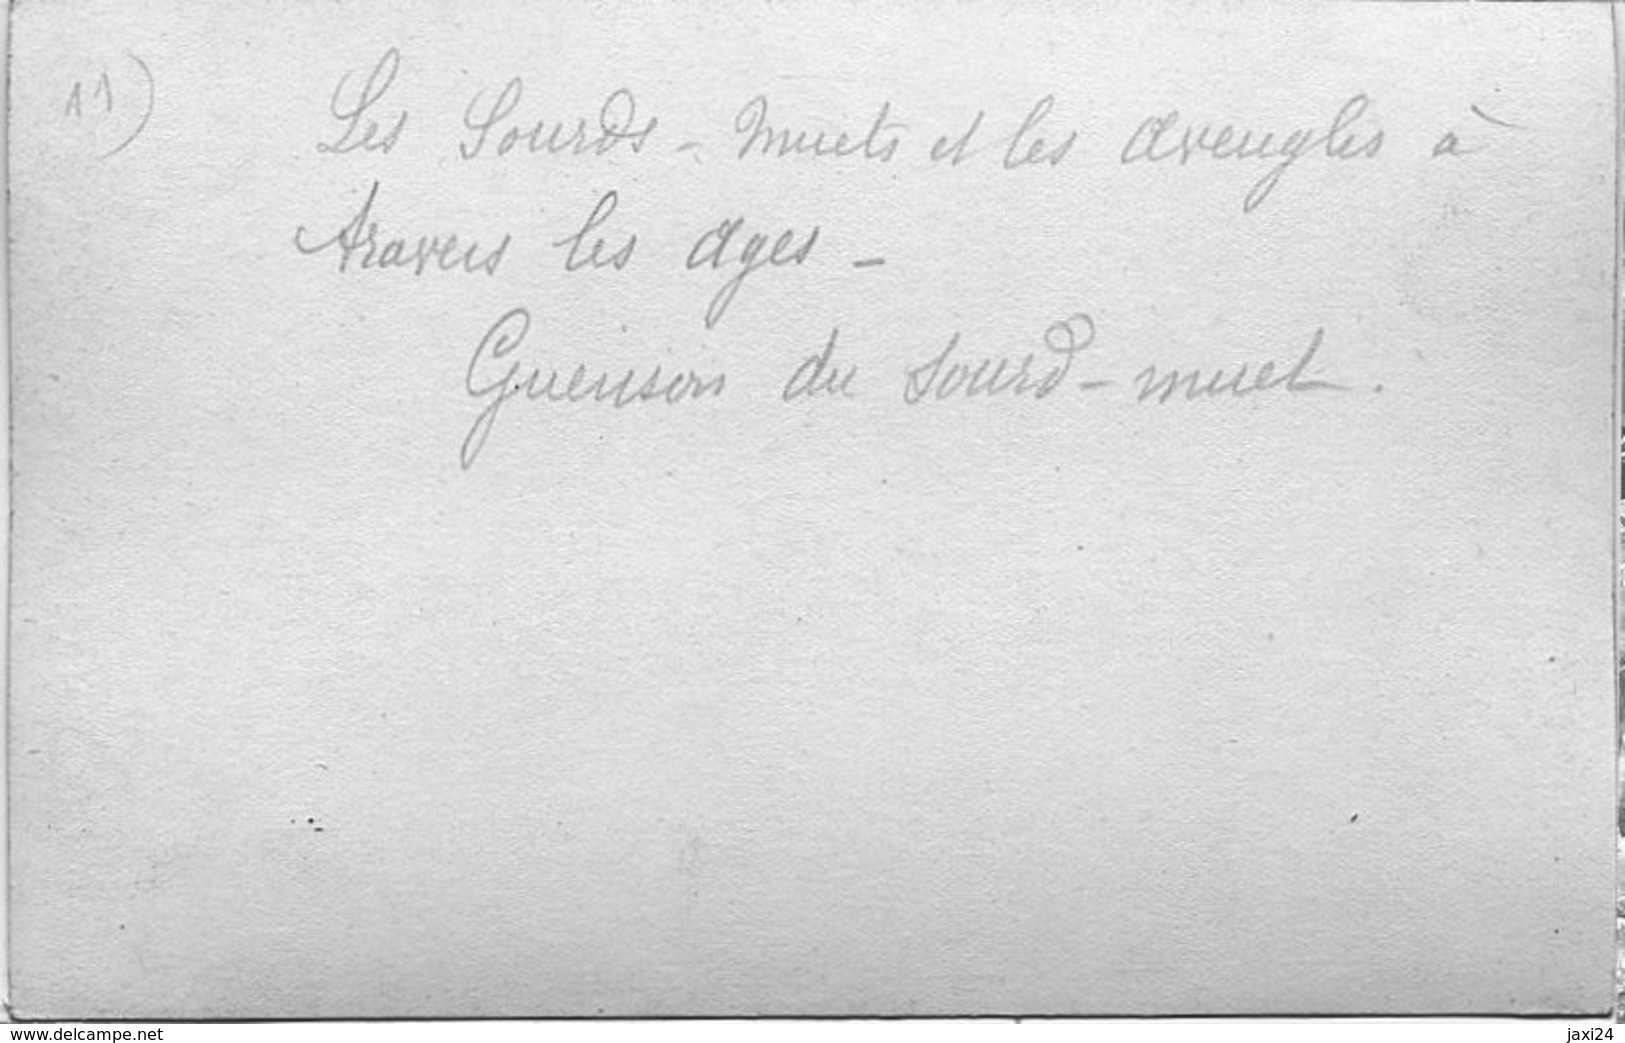 11)
Les Sourds-Muets et les aveugles à
travers les ages -
Guerison du sourd-muet.
www.delcampe.net
jaxi24